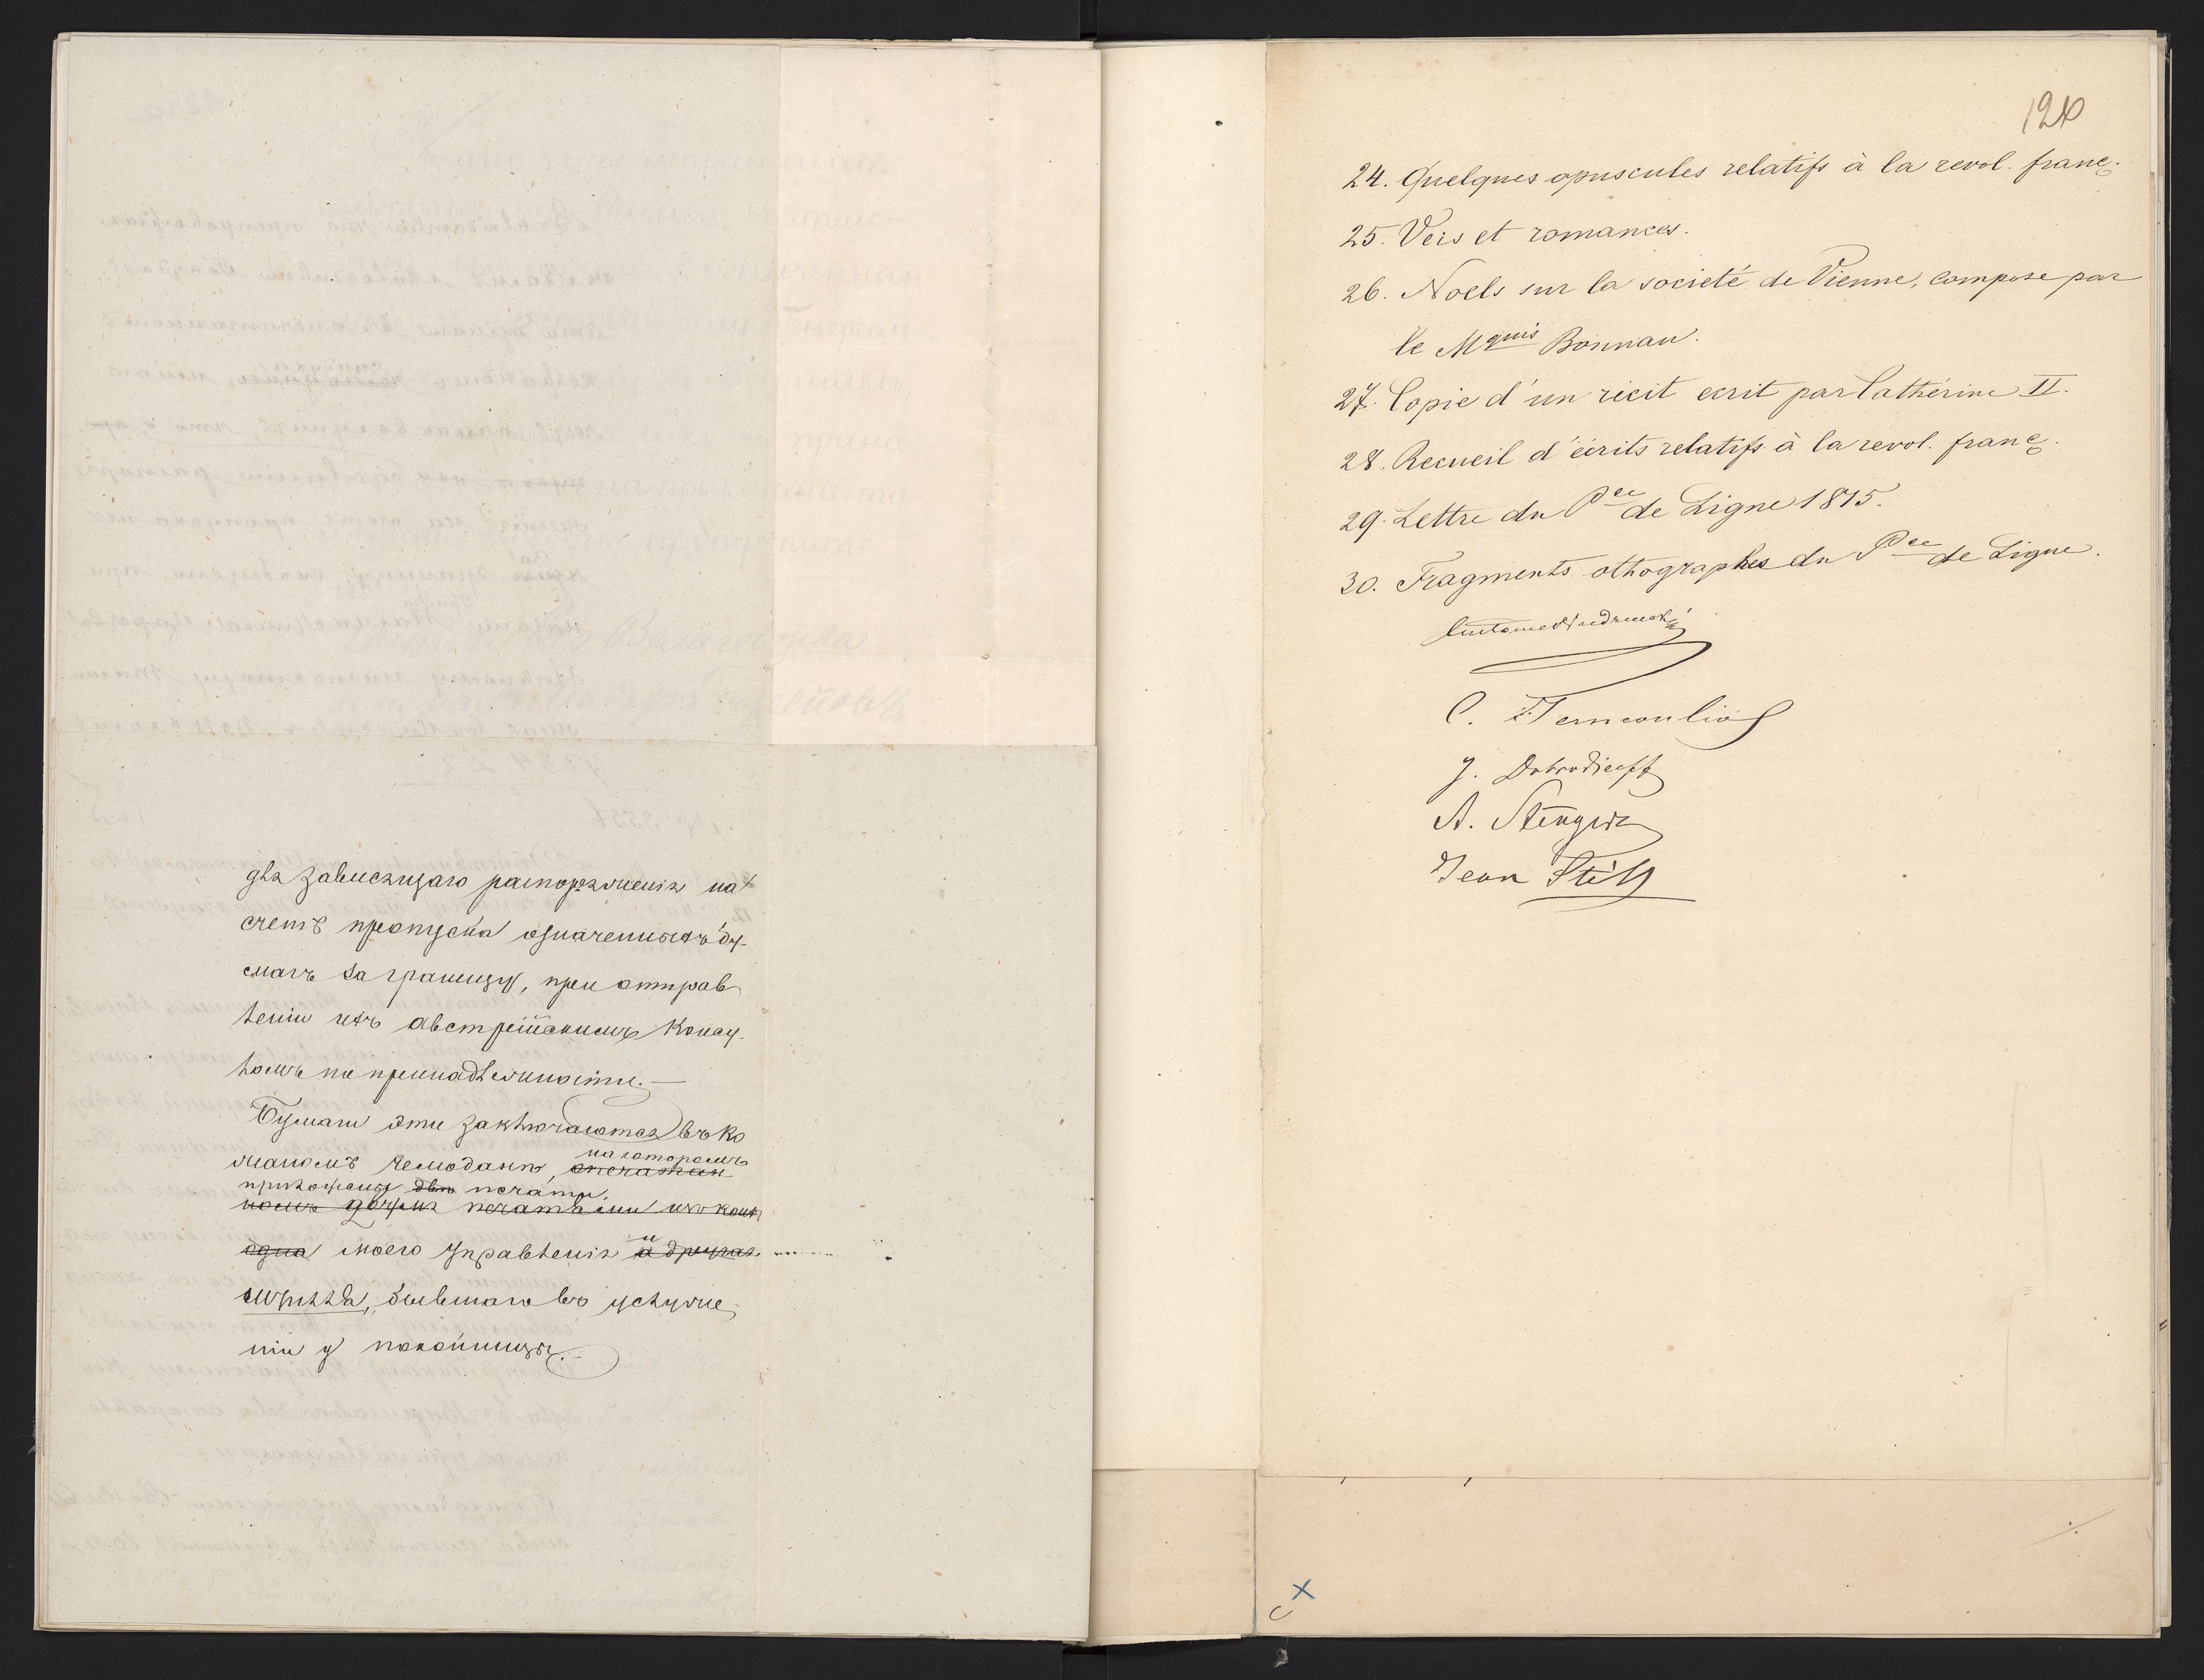 для зависящаго распоряженія на
счетъ пропуска означенныхъ бу-
магъ за границу, при отправ
леніи ихъ австрійскимъ Консу-
ломъ по принадлежности.—
Бумаги эти заключаются въ ко
жаномъ чемоданѣ, опечатан
на которомъ
приложены двѣ печати.
номъ двумя печатьми изъ коихъ
одна моего Управленія а другая
и
бывшаго въ услуже
ніи у покойницы.—
120
24. Quelques opuscules relatifs à la revol. franç.
25. Vers et romances.
26. Noels sur la societé de Vienne, compose par
le Mquis Bonnau.
27. Copie d'un récit ecrit par Cathérine II.
28. Recueil d'écrits relatifs à la revol. franç.
29. Lettre du Pce de Ligne 1815.
30. Fragments othographes du Pce de Ligne.
C.
J. Dobrodieff
A.
Jean